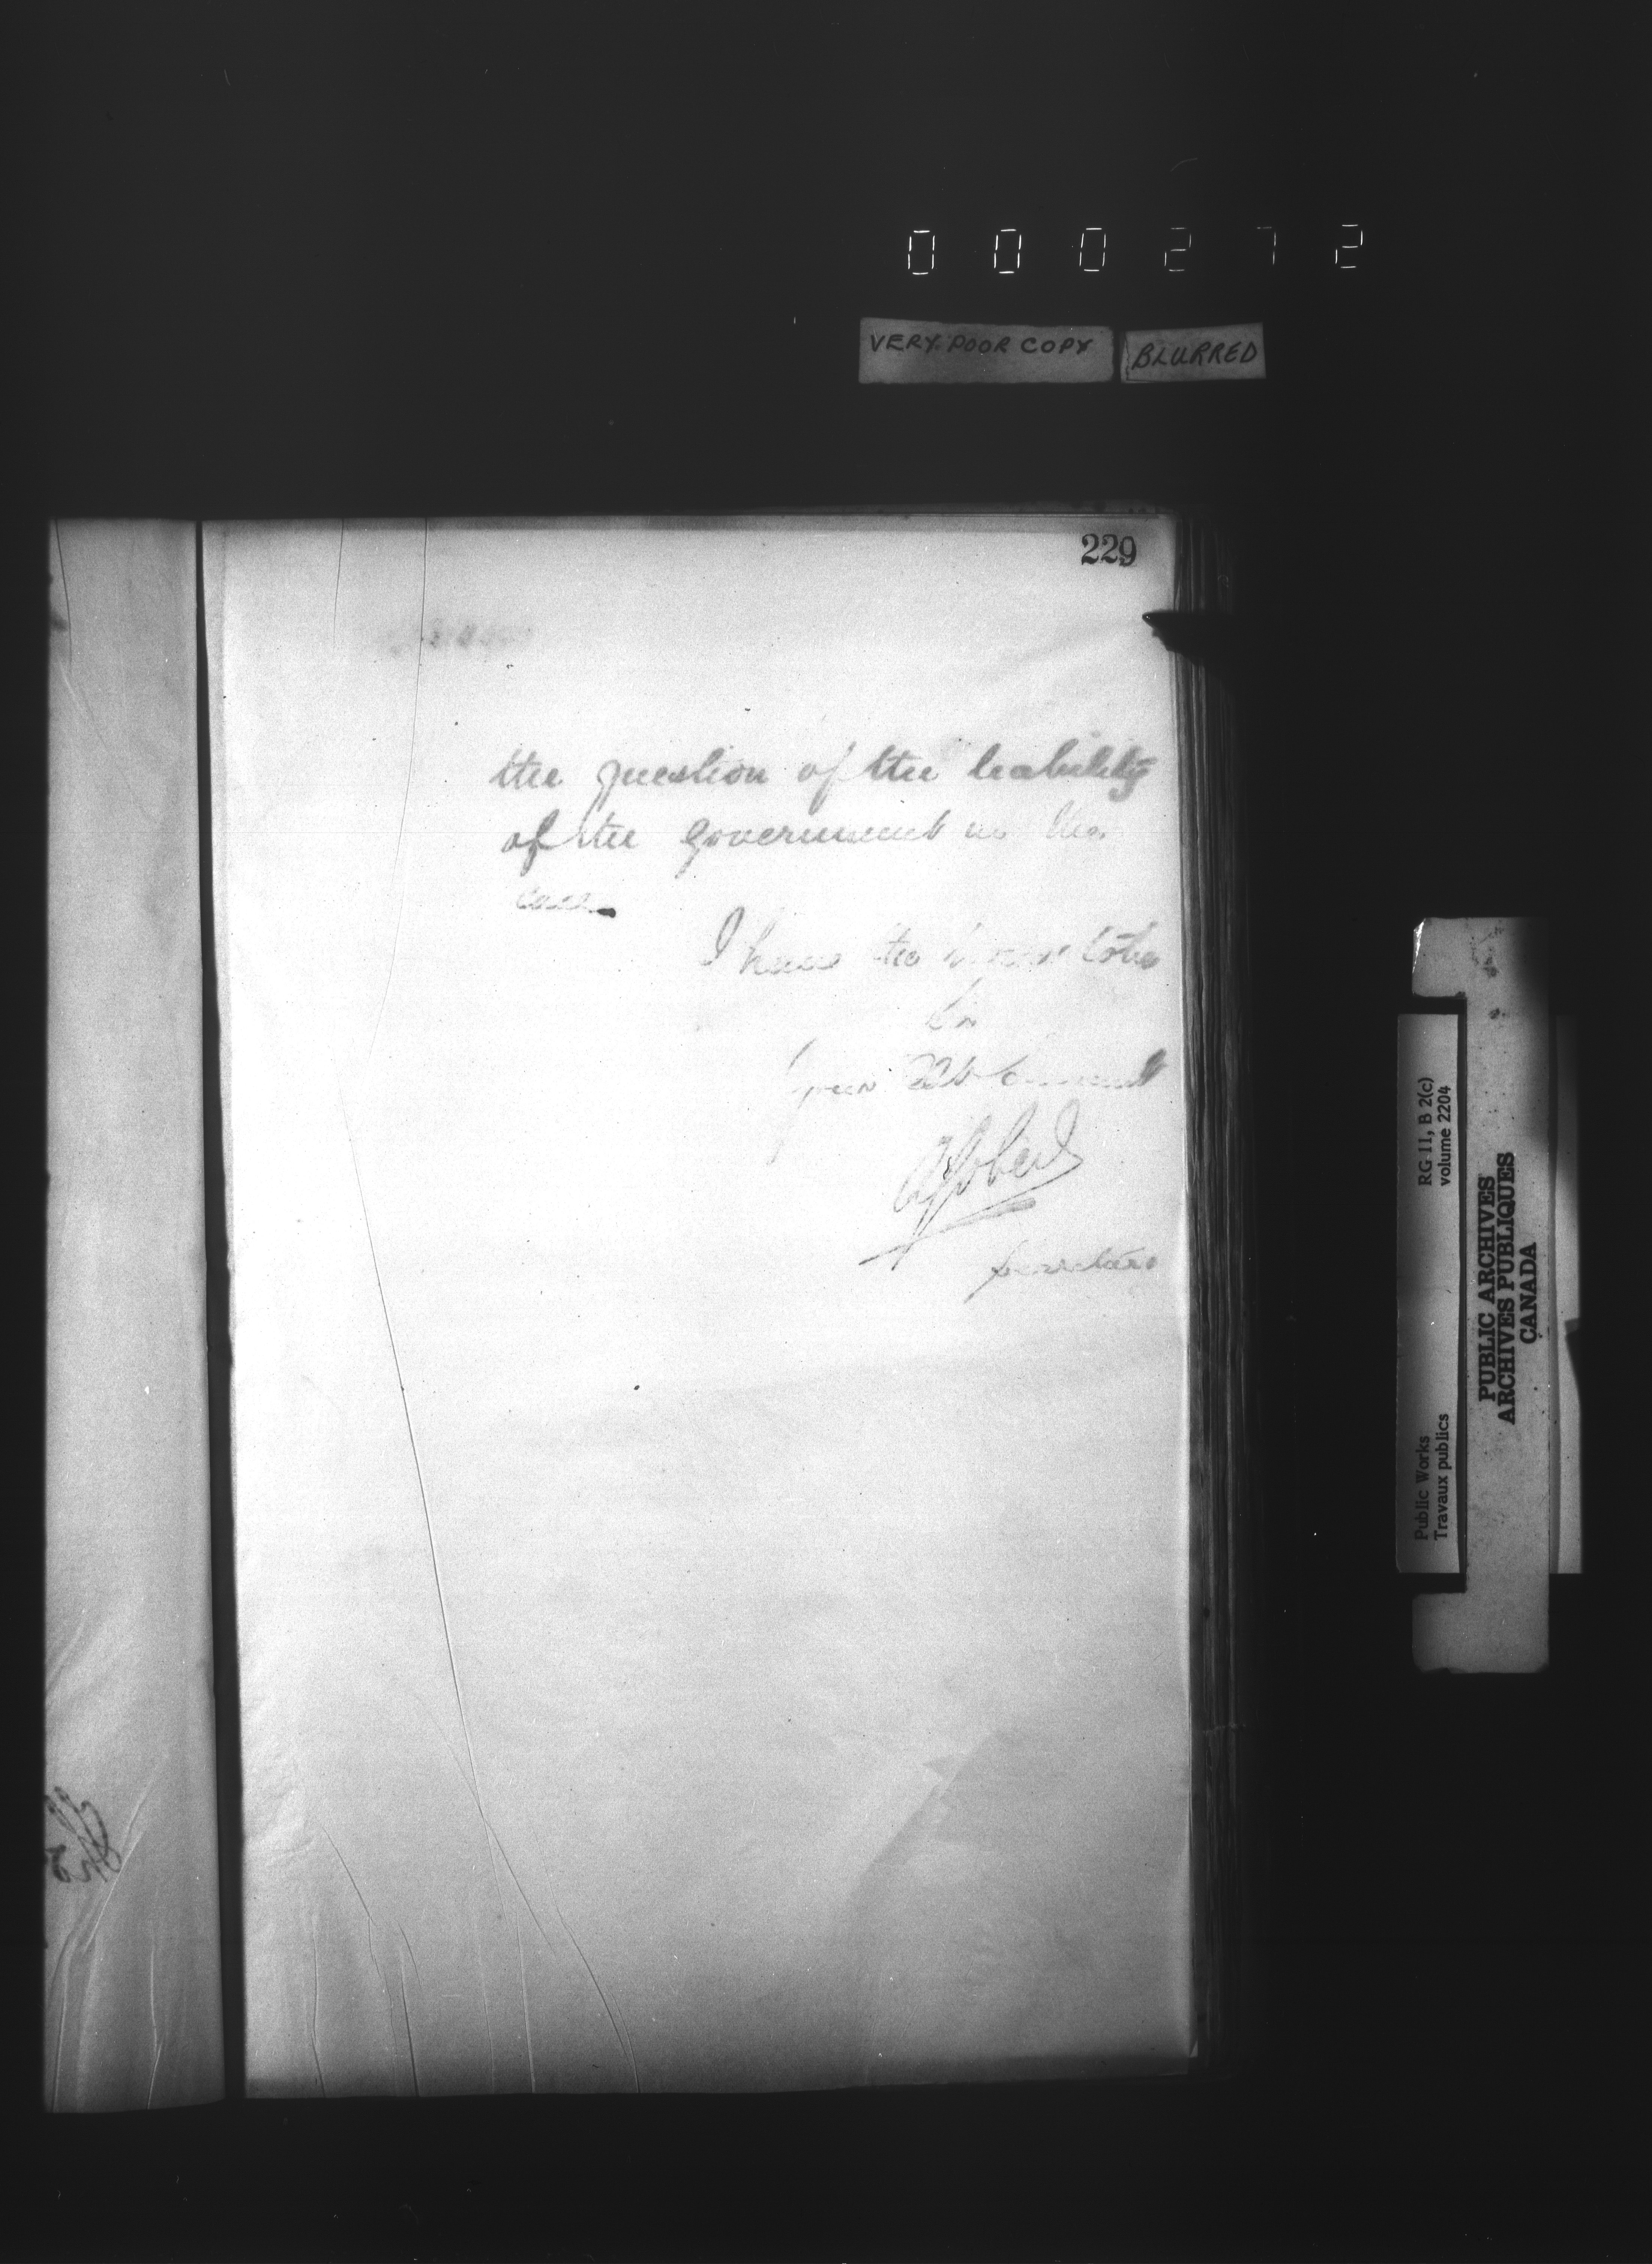 000272
VERY POOR COPY
BLURRED
229
the question of the liability
of the government in this
case.
I have the honor to be
Sir
Your Obt
Secretary
Public Works
Travaux publics
RG 11, B 2(c)
volume 2204
PUBLIC ARCHIVES
ARCHIVES PUBLIQUES
CANADA